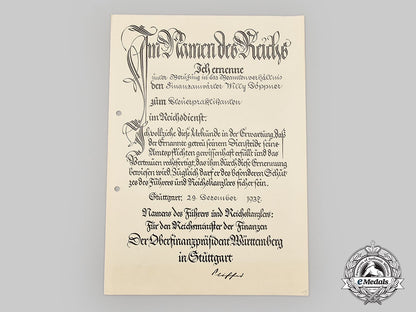 Im Namen des Reichs
Ich ernenne
unter Berufung in das Beamtenverhältnis
den Finanzanwärter Willy Göppner
zum Steuerpraktikanten
im Reichsdienst.
Ich vollziehe diese Urkunde in der Erwartung, daß
der Ernannte getreu seinem Diensteide seine
Amtspflichten gewissenhaft erfüllt und das
Vertrauen rechtfertigt, das ihm durch diese Ernennung
bewiesen wird. Zugleich darf er des besonderen Schut-
zes des Führers und Reichskanzlers sicher sein.
Stuttgart, 29. Dezember
Namens des Führers und Reichskanzlers:
Für den Reichsminister der Finanzen
Der Oberfinanzpräsident Württemberg
in Stuttgart
eMedals